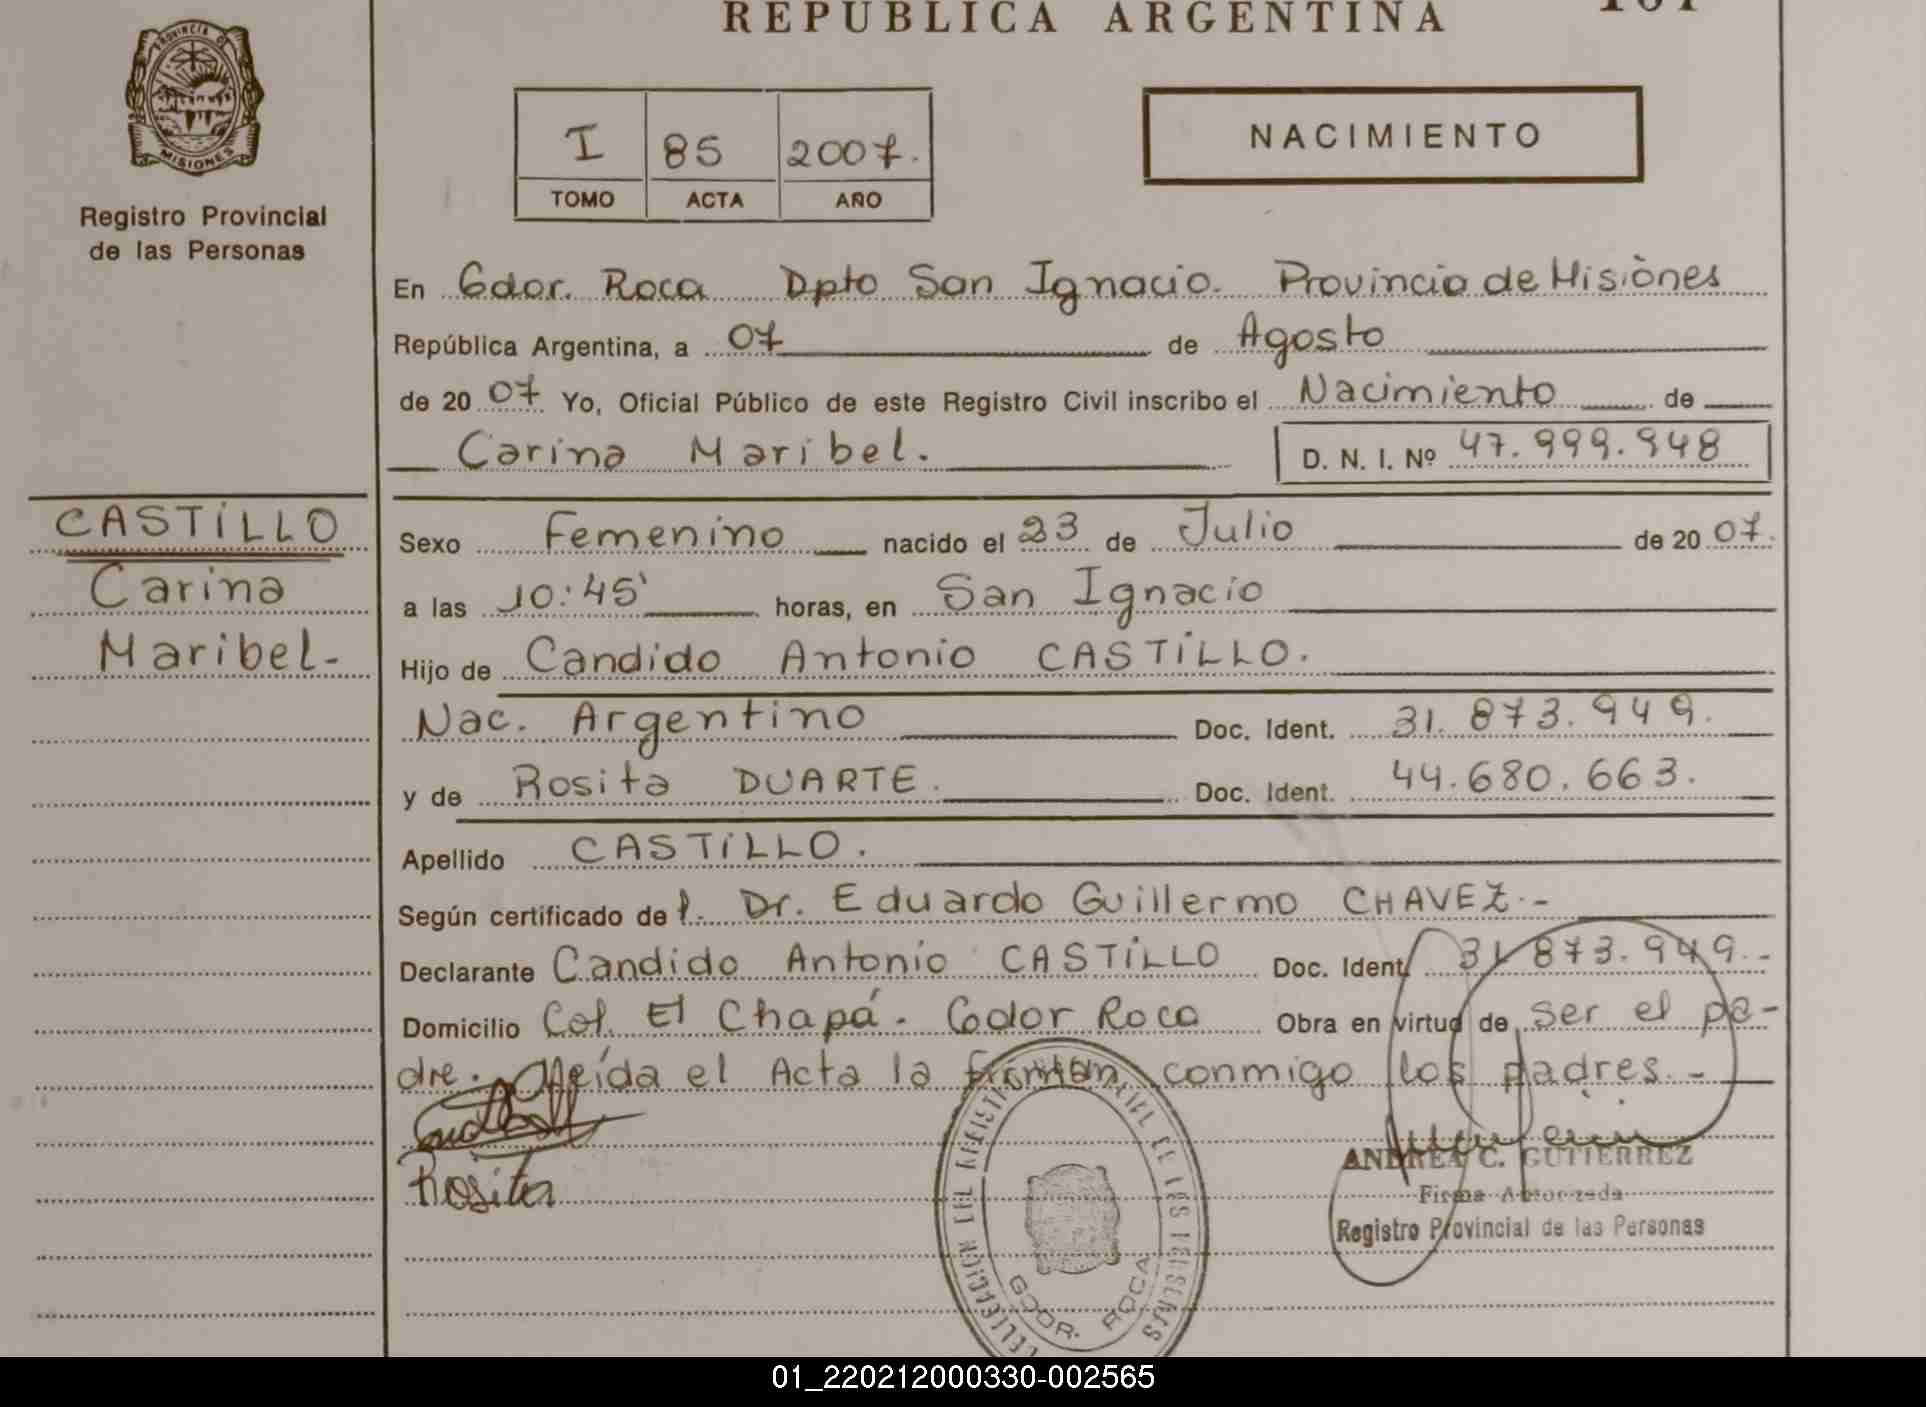 REPUBLICA ARGENTINA
PROVINCIA DE
MISIONES
Registro Provincial
de las Personas
I 85 2007.
TOMO ACTA AÑO
NACIMIENTO
En Gdor. Roca Dpto San Ignacio. Provincia de Misiones
República Argentina, a 07 de Agosto
de 2007 Yo, Oficial Público de este Registro Civil inscribo el Nacimiento de
Carina Maribel. D. N. I. Nº 47.999.948
CASTILLO
Carina
Maribel-
Sexo Femenino nacido el 23 de Julio de 2007.
a las 10:45' horas, en San Ignacio
Hijo de Candido Antonio CASTILLO.
Nac. Argentino Doc. Ident. 31.873.949.
y de Rosita DUARTE. Doc. Ident. 44.680.663.
Apellido CASTILLO.
Según certificado del. Dr. Eduardo Guillermo CHAVEZ.-
Declarante Candido Antonio CASTILLO Doc. Ident. 31.873.949.-
Domicilio Col. El Chapá. Gdor Roca Obra en virtud de ser el pa-
dre. Leída el Acta la firman conmigo los padres.-
Rosita
GDOR. ROCA
ANDREA C. GUTIERREZ
Firma Autorizada
Registro Provincial de las Personas
01_220212000330-002565